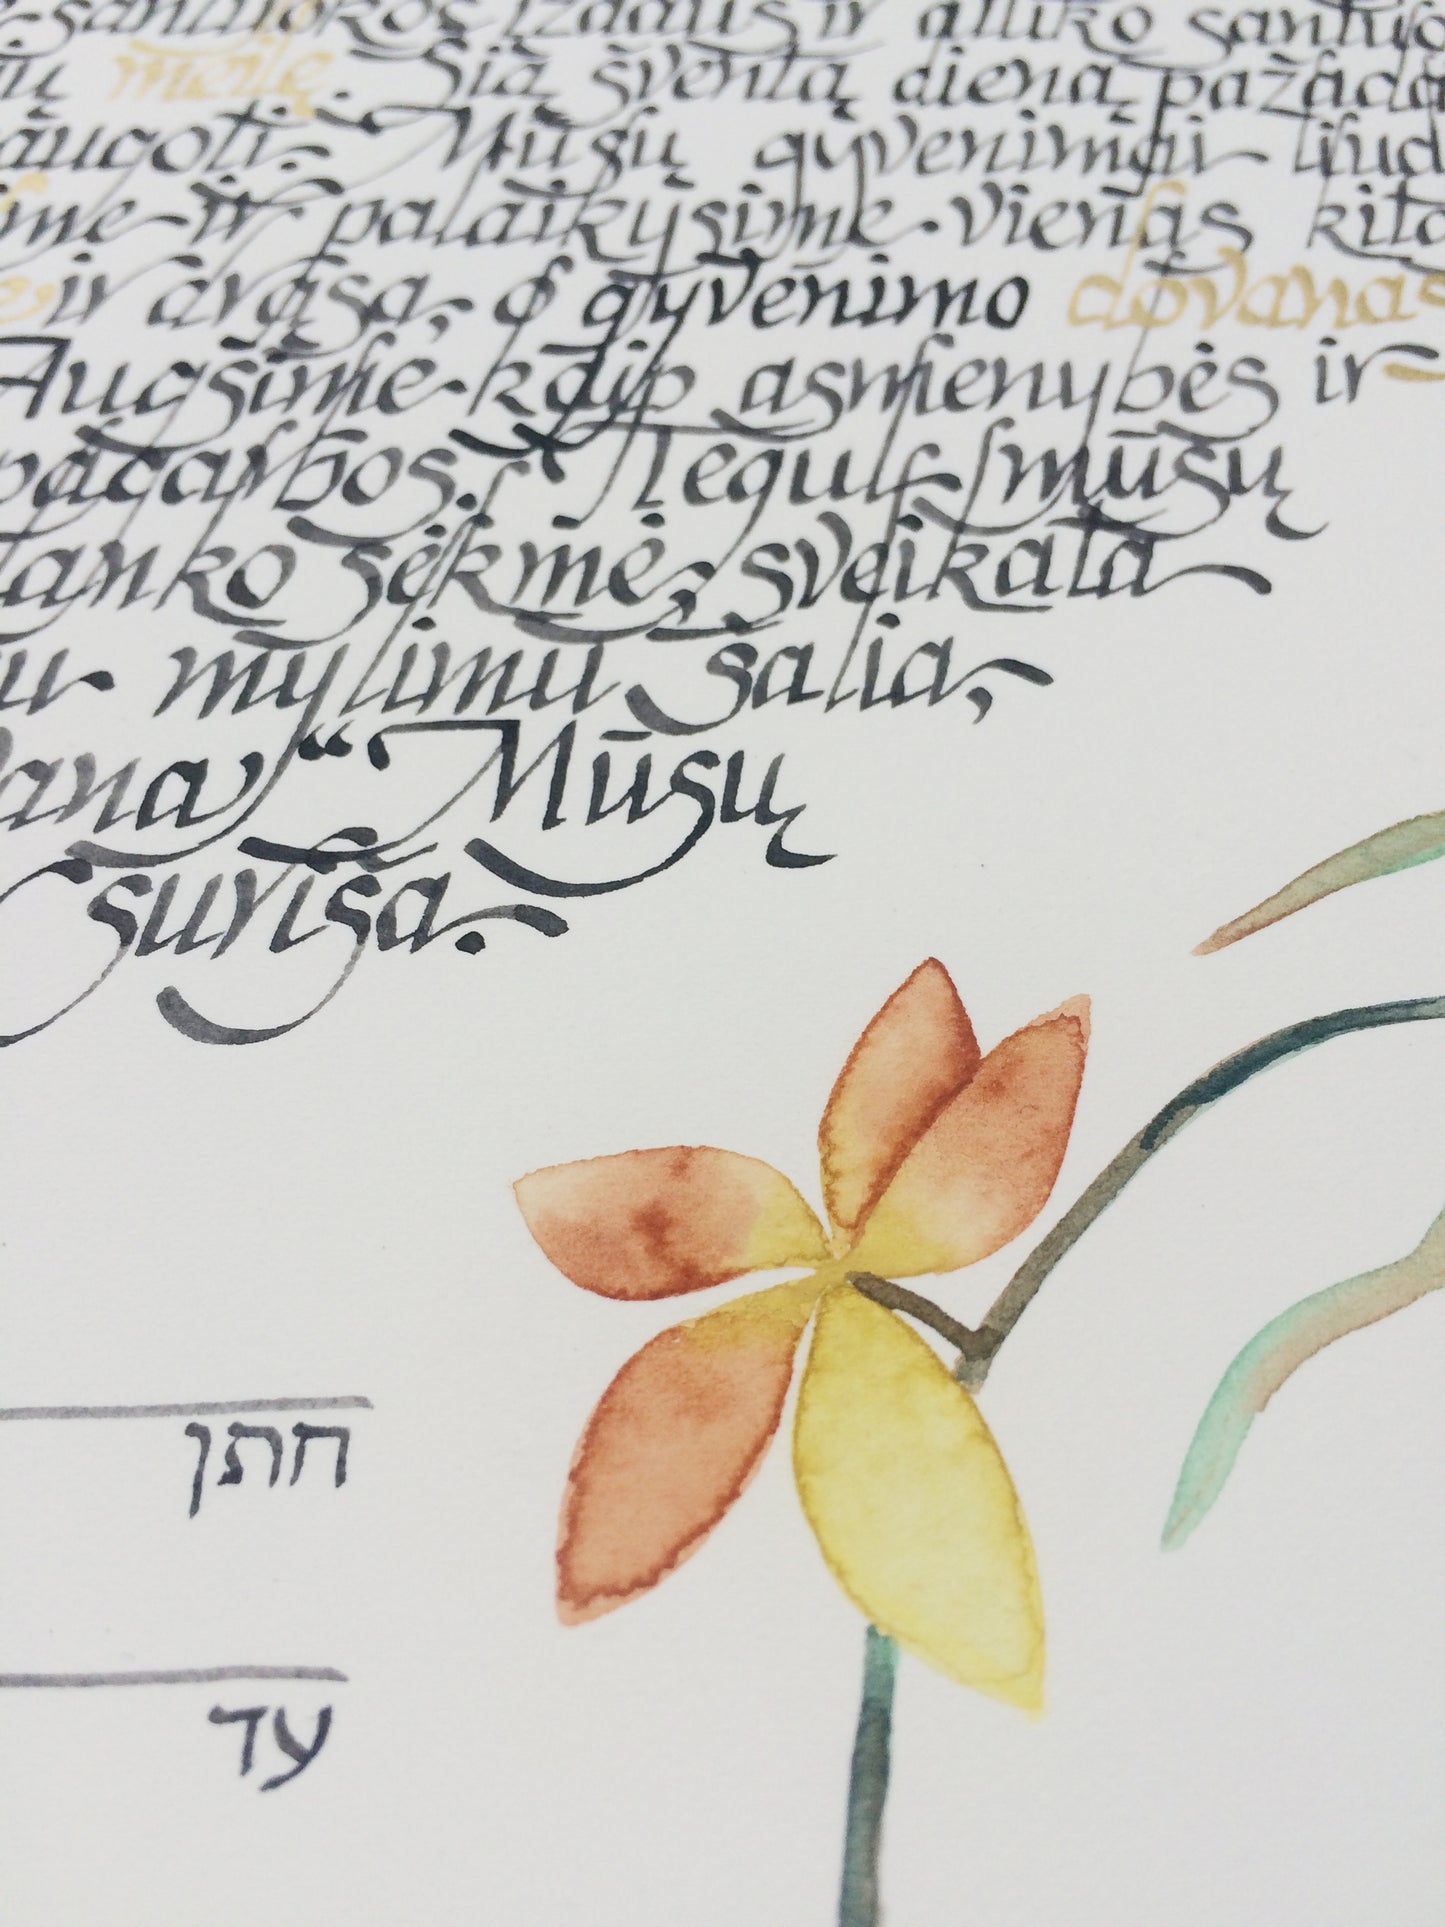 santuokos įžadus ir atliko
meilę. Šią šventą dieną
saugoti. Mūsų gyvenimai
ir palaikysime vienas
ir drąsa, o gyvenimo dovanas
Augsime kaip asmenybės ir
pagarbos. Tegul mūsų
sėkmė, sveikata
mylimu šalia,
Mūsų
suriša.
חתן
עד